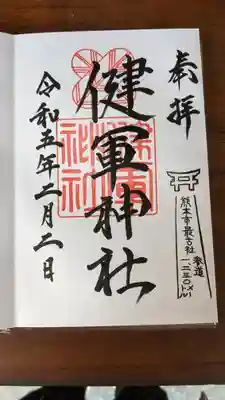 奉拝
熊本市最古社
参道
一、二三〇メートル
健軍神社
令和五年二月二日